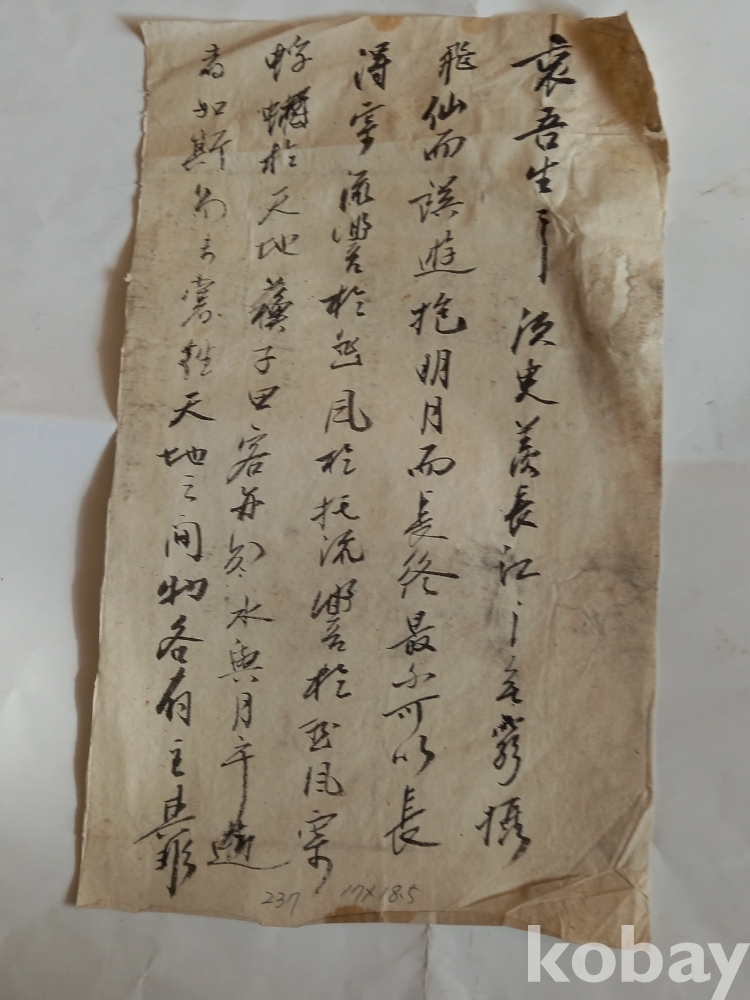 哀吾生之須臾羨長江之無窮携
飛仙而誤遊抱明月而長終最不可以長
得寄流響於悲風於托流響於悲風寄
蜉蝣於天地蘓子曰客毎知水與月乎逝
者如斯而未 天地之間物各有主其
237 17×18.5
kobay